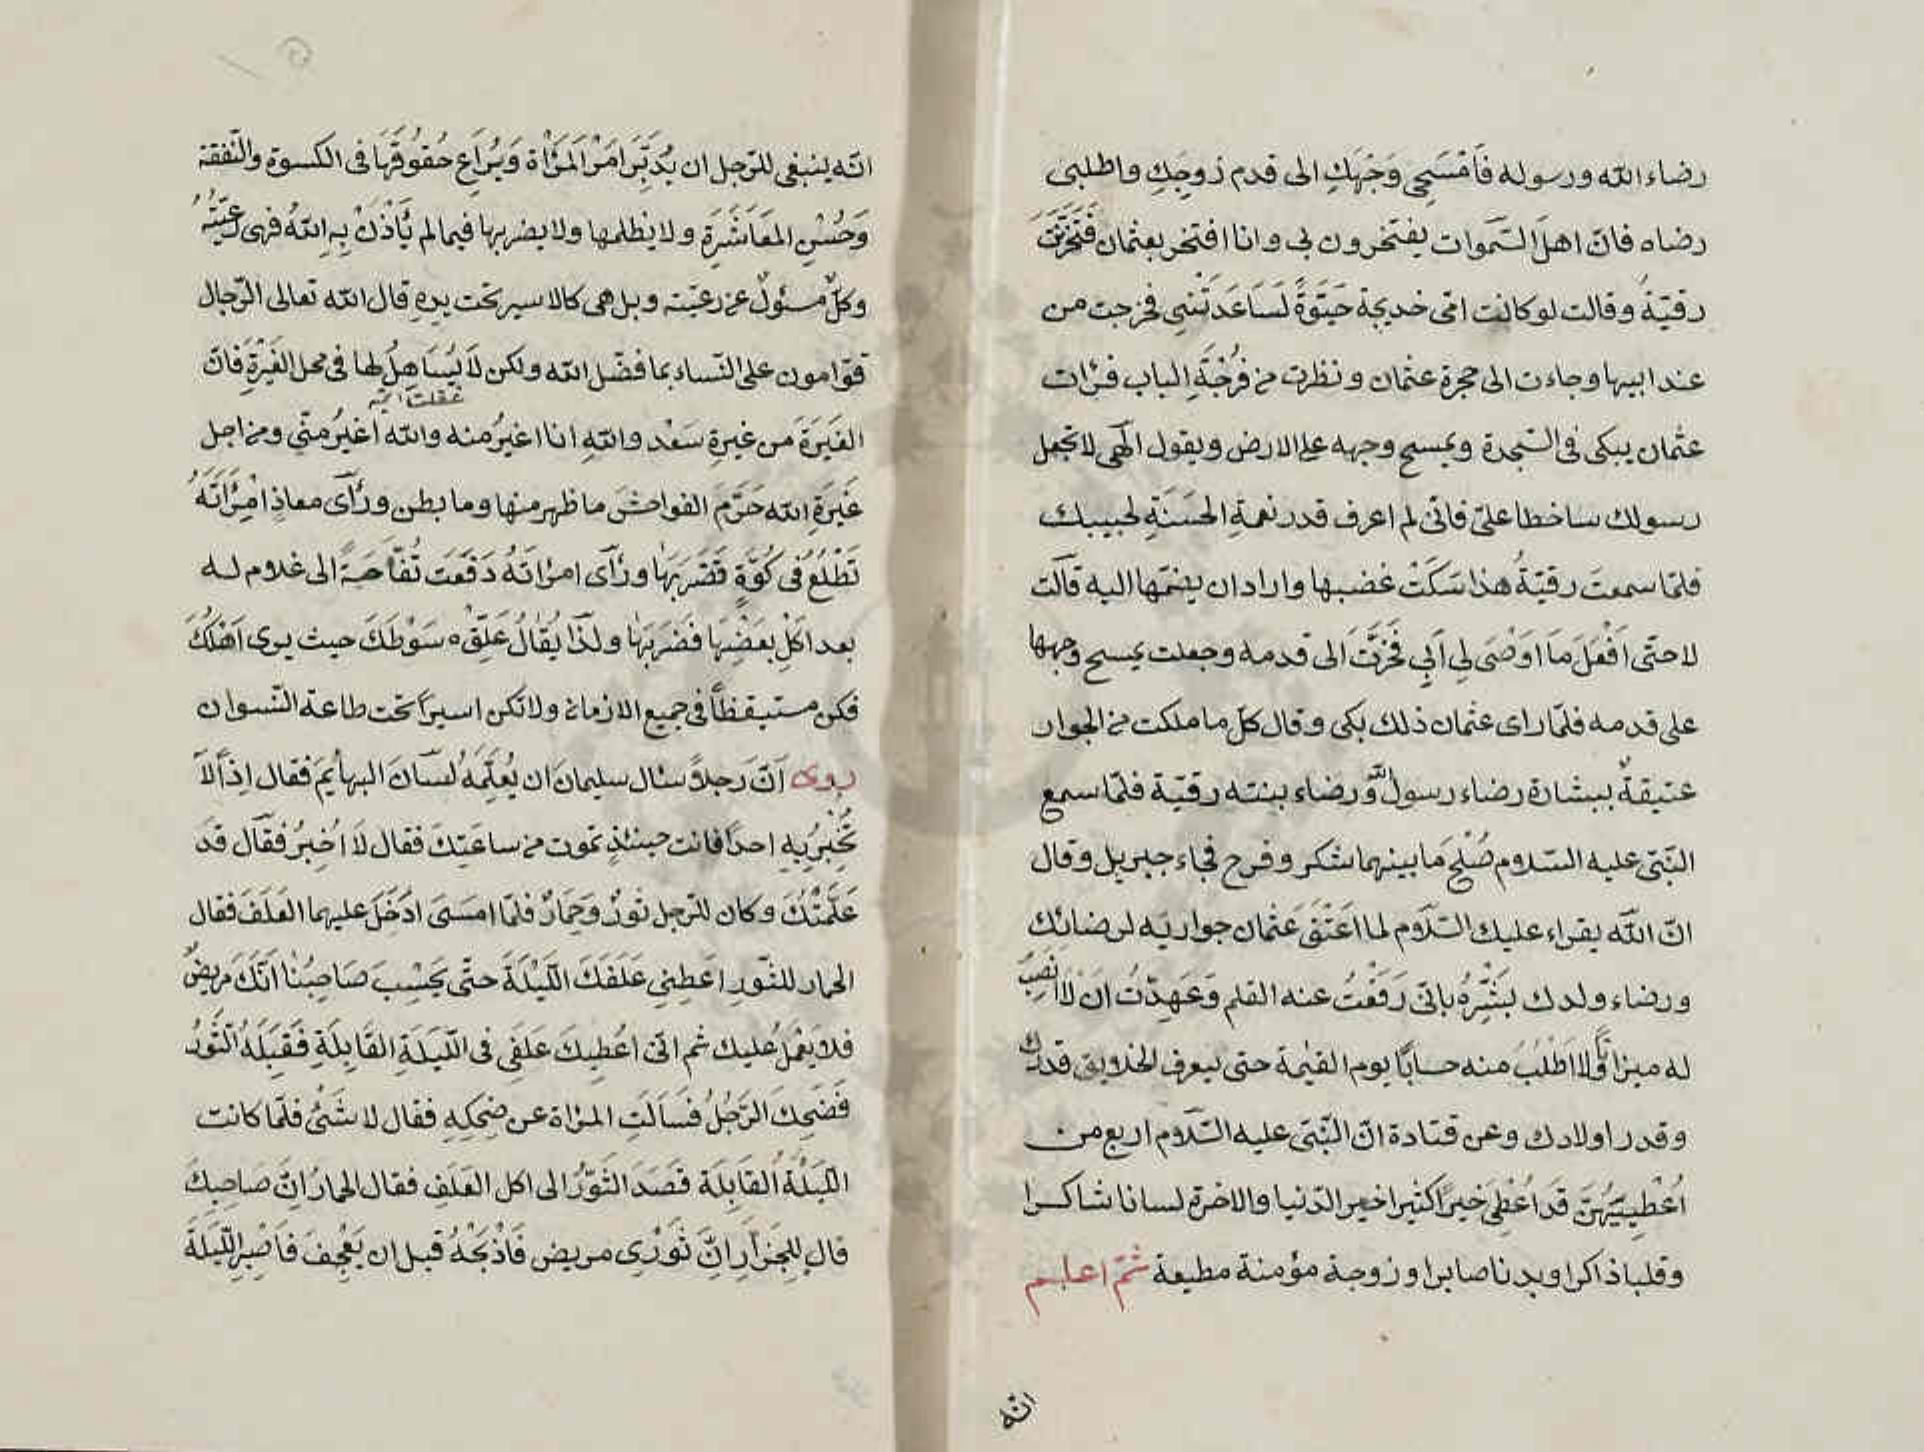 رضاء الله ورسوله فَامْسَحِى وَجْهَكِ الى قدم زوجِكِ واطلبى
رضاه فانّ اهلَ السّموات يفتخرون بى وانا افتخر بعثمان فَتَحَزَّنَتَ
رقيّةُ وقالت لو كانت امّى خديجة حَيَّوةً لَسَاعَدَتْنِى فخرجت من
عند ابيها وجاءت الى حجرة عثمان ونظرت من فُرْجَةِ الباب فرات
عثمان يبكى فى السّجدة ويمسح وجهه على الارض ويقول الٓهى لا تجعل
رسولك ساخطا علىّ فانّى لم اعرف قدر نعمةِ الحَسَنَةِ لحبيبك
فلمّا سمعتَ رقيّةُ هذا سَكَتْ غضبها واراد ان يضمّها اليه قالت
لا حتّى اَفْعَلَ مَا اَوْصَى لِى اَبِى فَخَرَّتَ الى قدمه وجعلت يمسح وجهها
على قدمه فلمّا راى عثمان ذلك بكى وقال كلّ ما ملكت من الجوار
عتيقةٌ ببشارة رضاء رسول الله ورضاء بنته رقيّة فلمّا سمع
النّبىّ عليه السّلام صُلْحَ ما بينهما شكر وفرح فجاء جبريل وقال
انّ الله يقراء عليك السّلام لما اَعْتَقَ عثمان جواريَه لرضائك
ورضاء ولدك بَشِّرْهُ بانّى رَفَعْتُ عنه القلم وَعَهِدْتُ ان لَا اَنْصِبَ
له ميزانًا ولا اَطْلُبَ منه حسابًا يوم القيمة حتى يعرف الخلايق قدرك
وقدر اولادك وعن قتادة انّ النّبىّ عليه السّلام اربع من
اُعْطِيَهُنَّ قد اُعْطِىَ خيرًا كثيرا خير الدّنيا والاخرة لسانا شاكرا
وقلبا ذاكرا وبدنا صابرا وزوجة مؤمنة مطيعة ثمّ اعلم
انّه
انّه ينبغى للرّجل ان يُدَبِّرَ امْرَ المَرْاة وَيُرَاعِ حُقُوقَهَا فى الكسوة والنّفقة
وَحُسْنِ المَعَاشَرَةِ ولا يظلمها ولا يضربها فيما لم يَأْذَنْ بِهِ اللهُ فهى رَعِيَّتُهُ
وكلٌّ مسئولٌ عن رعيّته وبل هى كالاسير تحت يدهِ قال الله تعالى الرّجال
قوّامون على النّساء بما فضّل الله ولكن لا يُسَاهِلُ لها فى محل الغَيْرَةِ فانّ
الغَيْرَةَ من غيرةِ سَعْد واللهِ انا اغيرُ منه والله اَغْيَرُ منّى ومن اجل
غَيْرَةِ الله حَرَّمَ الفواحشَ ما ظهر منها وما بطن ورأى معاذ امْرَأَتَهُ
تَطْلُعُ فى كُوَّةٍ فَضَرَبَهَا ورأى امراتَهُ دَفَعَت تُفَّاحَةً الى غلام له
بعد اكْلِ بعضِهَا فضَرَبَهَا ولذا يُقَالُ عَلِّقْ سَوْطَكَ حيث يرى اَهْلُكَ
فكن مستيقظًا فى جميع الازمان ولا تكن اسيرًا تحت طاعة النّسوان
روى اَنَّ رَجلًا سئال سليمانَ ان يُعَلِّمَهُ لسانَ البهائِمَ فقال اِذًا لَا
تُخْبِرُ بِهِ احدًا فانت حينئذٍ تموت من ساعَتِكَ فقال لَا اُخبِرُ فقال قد
عَلَّمْتُكَ وكان للرّجل ثورٌ وَحِمَارٌ فلمّا امسَى ادْخَلَ عليهما العَلَفَ فقال
الحمار للثّورِ اَعْطِنى عَلَفَكَ اللَّيْلَةَ حتّى يَحْسِبَ صَاحِبُنَا انَّكَ مَريضٌ
فلا يَعْمَلُ عليك ثم انّى اُعْطِيكَ عَلَفِى فى اللَّيْلَةِ القَابِلَةِ فَقَبِلَهُ الثَّورُ
فَضَحِكَ الرَّجُلُ فَسَأَلَتِ المراة عن ضِحْكِهِ فقال لا شَئْ فلمّا كانت
اللَّيْلَةُ القَابِلَة قَصَدَ الثَّورُ الى اكل العَلَفِ فقال الحمارُ انَّ صاحبك
قال لِلجَزَّارِ اِنَّ ثَوْرِى مريض فَاذْبَحْهُ قبل ان يَعْجِفَ فاَصْبِرِ اللَّيلَةَ